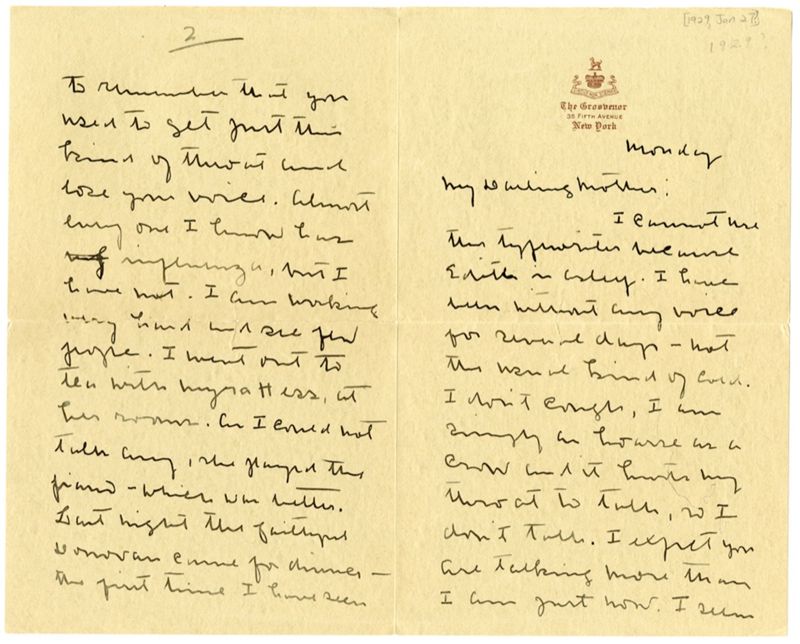 1929?
The Grosvenor
35 FIFTH AVENUE
New York
Monday
My Darling Mother:
I cannot use
this typewriter because
Edith is asleep. I have
been without any voice
for several days - not
the usual kind of cold.
I don't cough, I am
simply as hoarse as a
crow and it hurts my
throat to talk, so I
don't talk. I expect you
are talking more than
I am just now. I seem
2
to remember that you
used to get just this
kind of throat and
lose your voice. Almost
every one I know has
influenza, but I
have not. I am working
very hard and see few
people. I went out to
tea with Myra Hess, at
her rooms. As I could not
talk any, she played the
piano - which was better.
Last night the faithful
Donovan came for dinner -
the first time I have seen